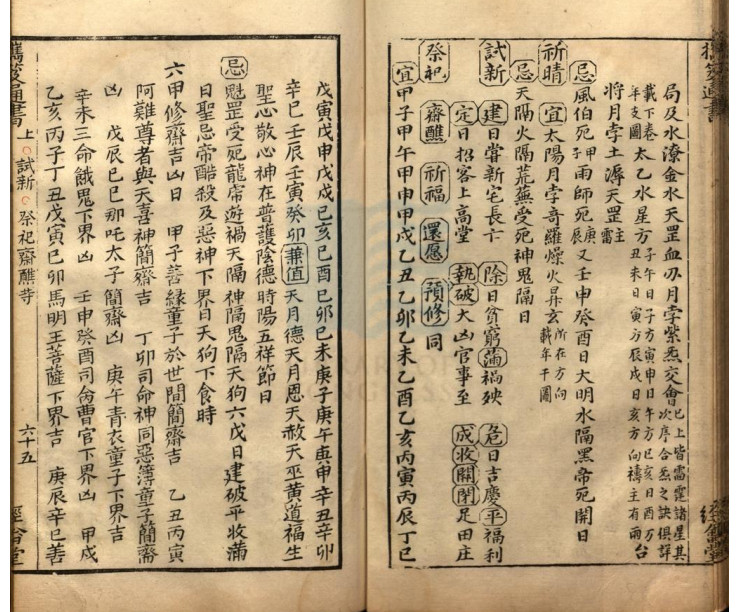 局及水潦金水天罡血刃月孛紫炁交會已上皆雷霆諸星其次序合炁之訣俱詳
載下卷年支圖太乙水星方子午日子方寅申日午方巳亥日酉方丑未日寅方辰戌日亥方向禱主有雨台
將月孛土潯天罡主雷
忌風伯死甲子雨師死庚辰又壬申癸酉日大明水隔黑帝死開日
祈晴宜太陽月孛奇羅燥火昇玄所在方向載年干圖
忌天隔火隔荒蕪受死神鬼隔日
試新建日嘗新宅長亡除日貧窮滿禍殃危日吉慶平福利
定日招客上高堂執破大凶官事至成收開閉足田庄
祭祀齋醮祈福還愿預修同
宜甲子甲午甲申甲戌乙丑乙卯乙未乙酉乙亥丙寅丙辰丁巳
戊寅戊申戊戌己亥己酉己卯己未庚子庚午庚申辛丑辛卯
辛巳壬辰壬寅癸卯兼值天月德天月恩天赦天巫黃道福生
聖心敬心神在普護陰德時陽五祥節日
忌魁罡受死龍帝遊禍天隔神隔鬼隔天狗六戊日建破平收滿
日聖忌帝酷殺及惡神下界日天狗下食時
六甲修齋吉凶日 甲子善緣童子於世間簡齋吉 乙丑丙寅
阿難尊者與天喜神簡齋吉 丁卯司命神同惡薄童子簡齋
凶 戊辰己巳那吒太子簡齋凶 庚午青衣童子下界吉
辛未三命餓鬼下界凶 壬申癸酉司命曹官下界凶 甲戌
乙亥丙子丁丑戊寅己卯馬明王菩薩下界吉 庚辰辛巳善
攜笈通書 上 試新 祭祀齋醮等 六十五 經翕堂